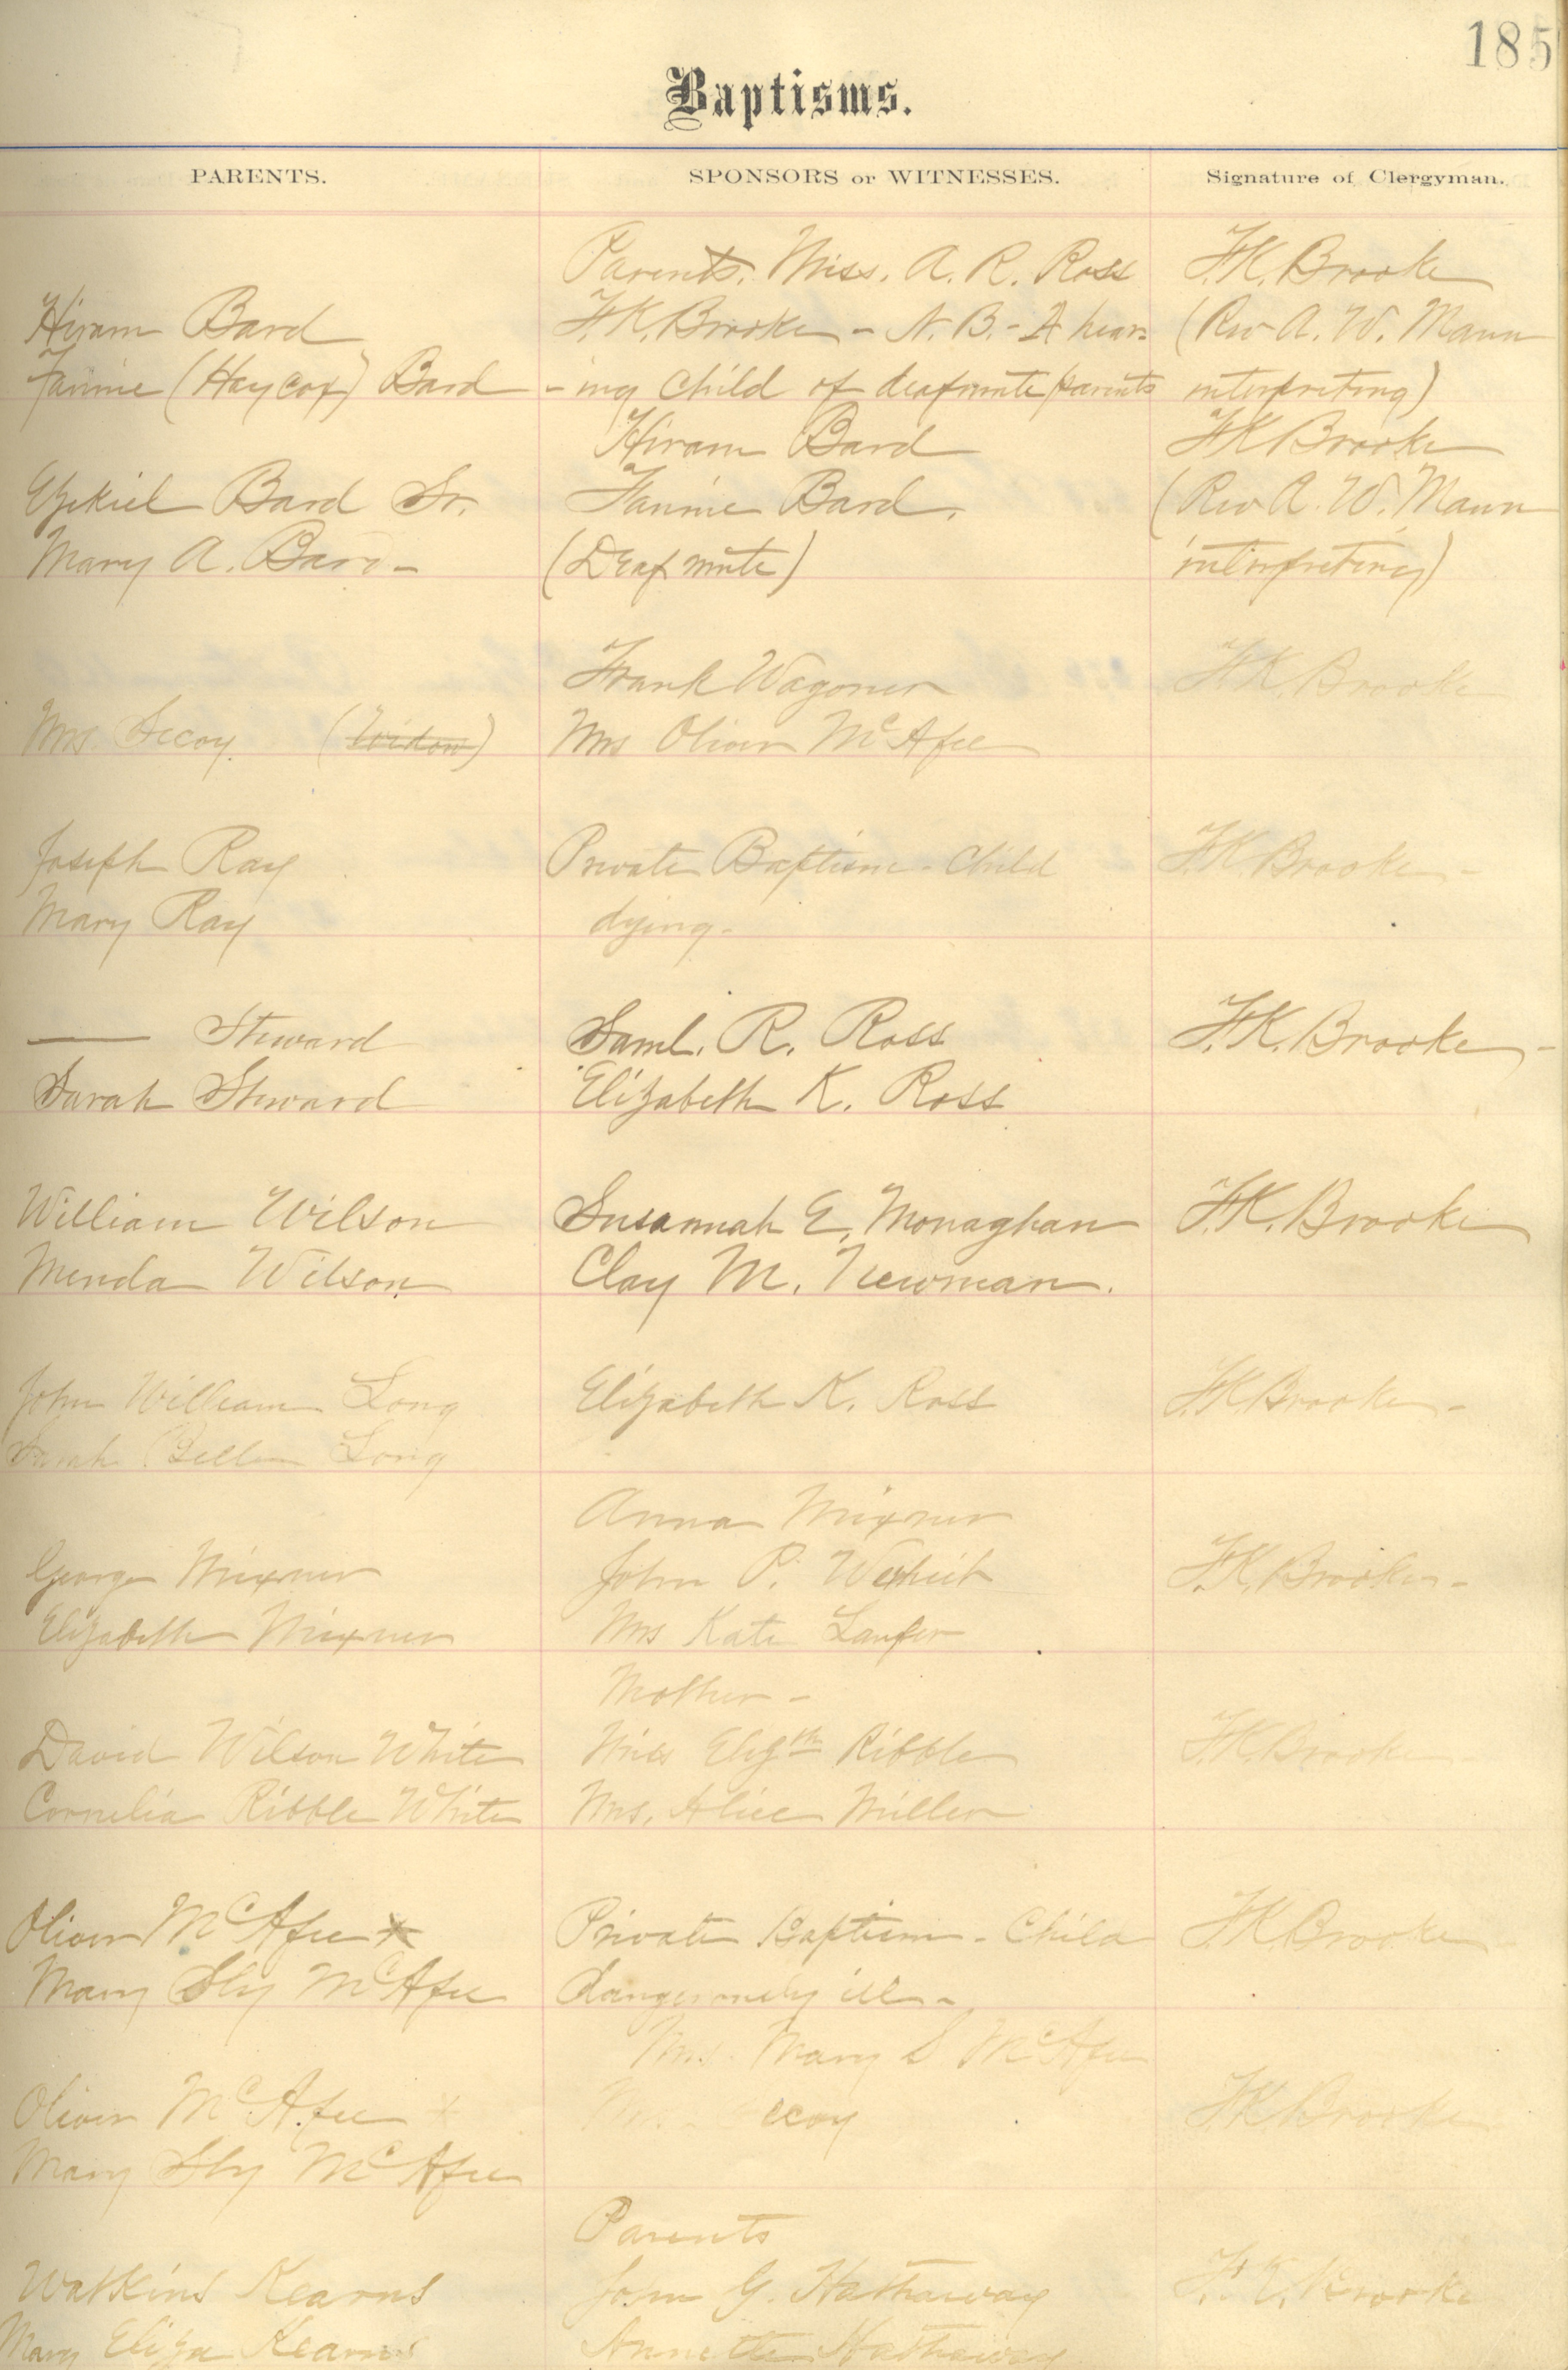 185
Baptisms.
PARENTS. SPONSORS or WITNESSES. Signature of Clergyman.
Parents. Miss. A. R. Ross F.K. Brooke
Hiram Bard F.K. Brooke - N.B. - A hear- (Rev A. W. Mann
Fannie (Haycox) Bard -ing child of deafmute parents interpreting)
Hiram Bard F.K. Brooke
Ezekiel Bard Sr. Fannie Bard. (Rev A. W. Mann
Mary A. Bard - (Deaf mute) interpreting)
Frank Wagoner F.K. Brooke
Mrs Secoy. (Widow) Mrs Oliver McAfee
Joseph Ray Private Baptism - Child F.K. Brooke -
Mary Ray dying -
—— Steward Saml. R. Ross F.K. Brooke -
Sarah Steward Elizabeth K. Ross
William Wilson Susannah E. Monaghan F.K. Brooke
Menda Wilson Clay M. Newman.
John William Long Elizabeth K. Ross F.K. Brooke -
Sarah Bell Long
Anna Mixner
George Mixner John P. F.K. Brooke -
Elizabeth Mixner Mrs Kate
Mother -
David Wilson White Miss Elizth Ribble F.K. Brooke -
Cornelia Ribble White Mrs. Alice Miller
Oliver McAfee x Private Baptism - Child F.K. Brooke
Mary Sly McAfee dangerously ill -
Mrs. Mary S McAfee
Oliver McAfee x F.K. Brooke
Mary Sly McAfee
Parents
Watkins Kearns John G. Hathaway F.K. Brooke
Mary Eliza Kearns Annette Hathaway